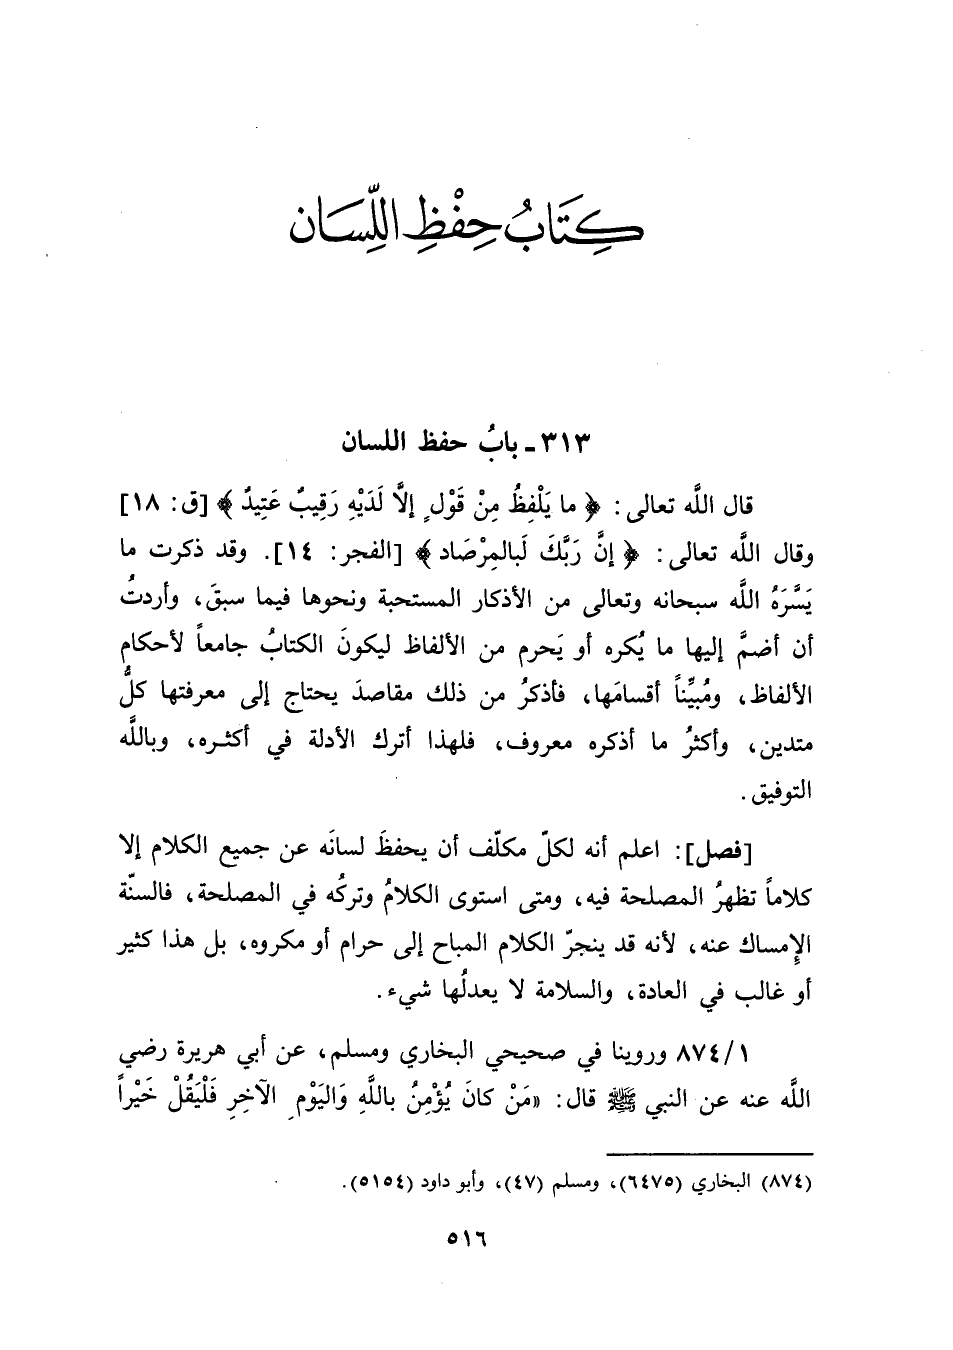 كِتَابُ حِفْظِ اللِّسَان
٣١٣ ـ بابُ حفظ اللسان
قال اللَّه تعالى: ﴿ ما يَلْفِظُ مِنْ قَوْلٍ إلَّا لَدَيْهِ رَقِيبٌ عَتِيدٌ ﴾ [ق: ١٨]
وقال اللَّه تعالى: ﴿ إنَّ رَبَّكَ لَبالمِرْصَاد ﴾ [الفجر: ١٤]. وقد ذكرت ما
يَسَّرَهُ اللَّه سبحانه وتعالى من الأذكار المستحبة ونحوها فيما سبقَ، وأردتُ
أن أضمَّ إليها ما يُكره أو يَحرم من الألفاظ ليكونَ الكتابُ جامعاً لأحكام
الألفاظ، ومُبيِّناً أقسامَها، فأذكرُ من ذلك مقاصدَ يحتاج إلى معرفتها كلُّ
متدين، وأكثرُ ما أذكره معروف، فلهذا أترك الأدلة في أكثره، وباللَّه
التوفيق.
[فصل]: اعلم أنه لكلّ مكلّف أن يحفظَ لسانَه عن جميع الكلام إلا
كلاماً تظهرُ المصلحة فيه، ومتى استوى الكلامُ وتركُه في المصلحة، فالسنّة
الإمساك عنه، لأنه قد ينجرّ الكلام المباح إلى حرام أو مكروه، بل هذا كثير
أو غالب في العادة، والسلامة لا يعدلُها شيء.
٨٧٤/١ وروينا في صحيحي البخاري ومسلم، عن أبي هريرة رضي
اللَّه عنه عن النبي ﷺ قال: «مَنْ كانَ يُؤْمِنُ باللَّهِ وَاليَوْمِ الآخِرِ فَلْيَقُلْ خَيْراً
(٨٧٤) البخاري (٦٤٧٥)، ومسلم (٤٧)، وأبو داود (٥١٥٤).
٥١٦